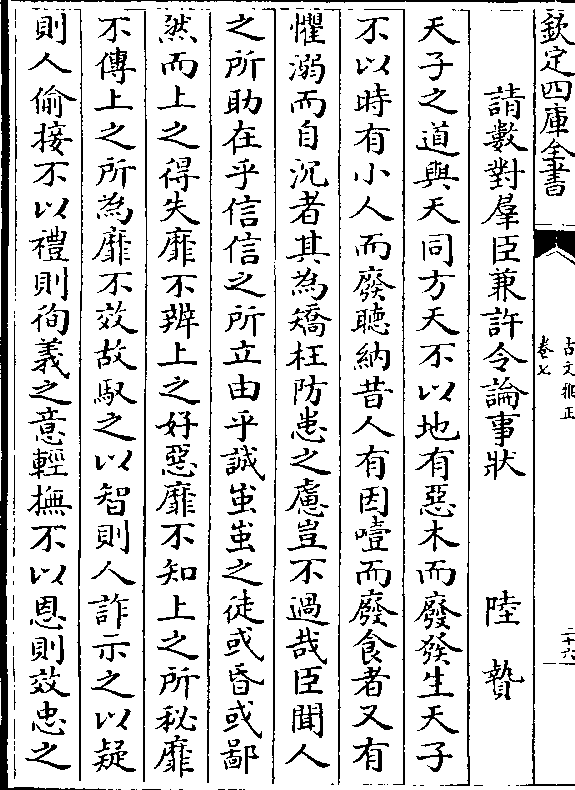 欽定四庫全書
古文雅正
卷七
二十六
請數對羣臣兼許令論事狀 陸贄
天子之道與天同方天不以地有惡木而廢發生天子
不以時有小人而廢聽納昔人有因噎而廢食者又有
懼溺而自沉者其為矯枉防患之慮豈不過哉臣聞人
之所助在乎信信之所立由乎誠蚩蚩之徒或昏或鄙
然而上之得失靡不辨上之好惡靡不知上之所秘靡
不傳上之所為靡不效故馭之以智則人詐示之以疑
則人偷接不以禮則徇義之意輕撫不以恩則效忠之